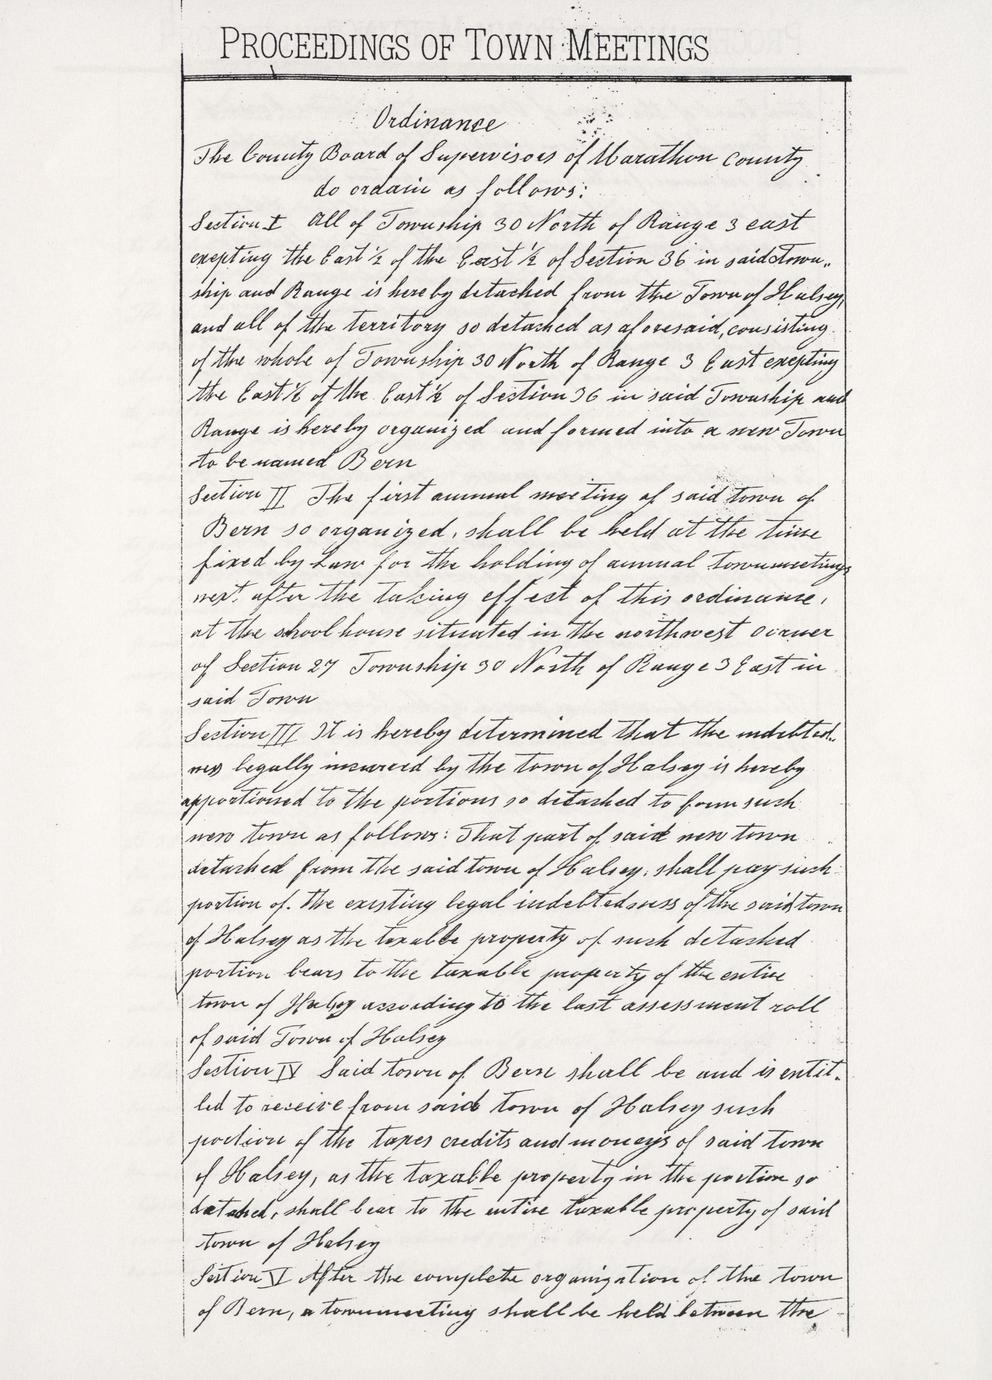 PROCEEDINGS OF TOWN MEETINGS
Ordinance
The County Board of Supervisors of Marathon County
do ordain as follows:
Section I All of Township 30 North of Range 3 east
exepting the East ½ of the East ½ of Section 36 in said Town-
ship and Range is hereby detached from the Town of Halsey,
and all of the territory so detached as aforesaid, consisting
of the whole of Township 30 North of Range 3 East exepting
the East ½ of the East ½ of Section 36 in said Township and
Range is hereby organized and formed into a new Town
to be named Bern
Section II The first annual meeting of said town of
Bern so organized, shall be held at the time
fixed by Law for the holding of annual townmeetings
next after the taking effect of this ordinance,
at the shool house situated in the northwest corner
of Section 27 Township 30 North of Range 3 East in
said Town
Section III It is hereby determined that the indebted-
nes legally incurred by the town of Halsey is hereby
apportioned to the portions so detached to form such
new town as follows: That part of said new town
detached from the said town of Halsey, shall pay such
portion of. the existing legal indebtedness of the said town
of Halsey as the taxable property of such detached
portion bears to the taxable property of the entire
town of Halsey according to the last assessment roll
of said Town of Halsey
Section IV Said town of Bern shall be and is entit-
led to receive from said town of Halsey such
portion of the taxes credits and moneys of said town
of Halsey, as the taxable property in the portion so
detached, shall bear to the entire taxable property of said
town of Halsey
Section V After the complete organization of the town
of Bern, a townmeeting shall be held between the